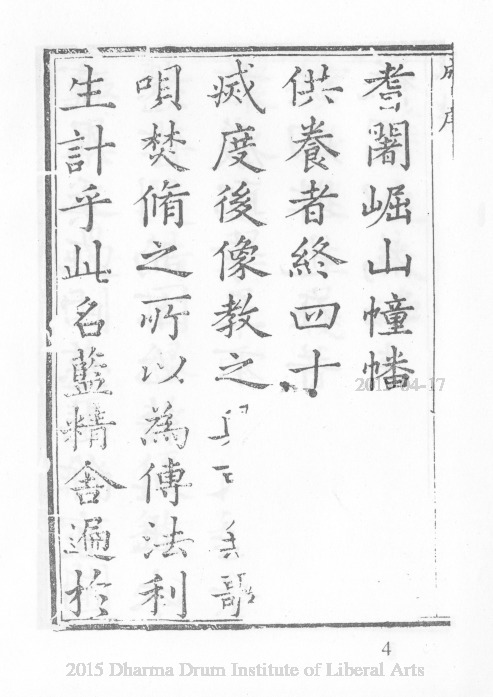 耆闍崛山幢幡
供養者終四十
滅度後像教之
唄焚脩之所以為傳法利
生計乎此名藍精舍遍於
2015-04-17
4
2015 Dharma Drum Institute of Liberal Arts